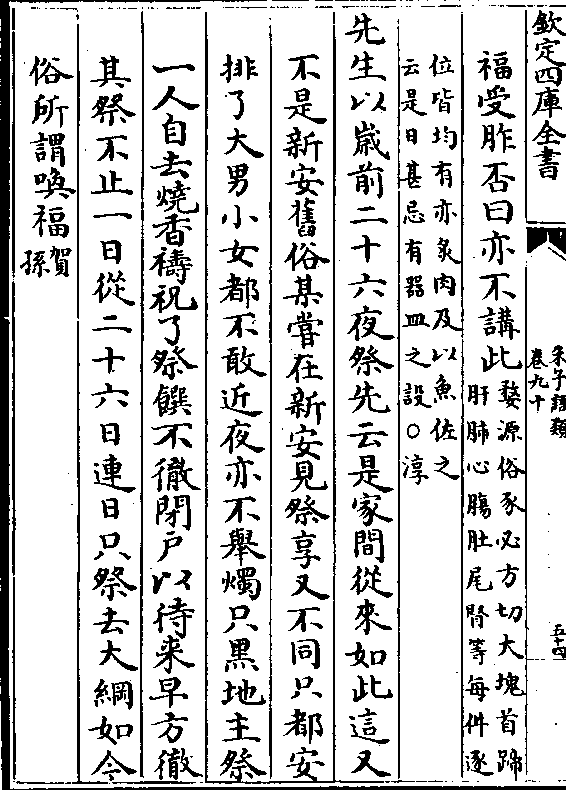 欽定四庫全書
朱子語類
卷九十
五十四
福受胙否曰亦不講此婺源俗豕必方切大塊首蹄
肝肺心腸肚尾腎等每件逐
位皆均有亦炙肉及以魚佐之
云是日甚忌有器皿之設○淳
先生以嵗前二十六夜祭先云是家間從來如此這又
不是新安舊俗某嘗在新安見祭享又不同只都安
排了大男小女都不敢近夜亦不舉燭只黑地主祭
一人自去燒香禱祝了祭饌不徹閉戸以待来早方徹
其祭不止一日從二十六日連日只祭去大綱如今
俗所謂喚福賀
孫